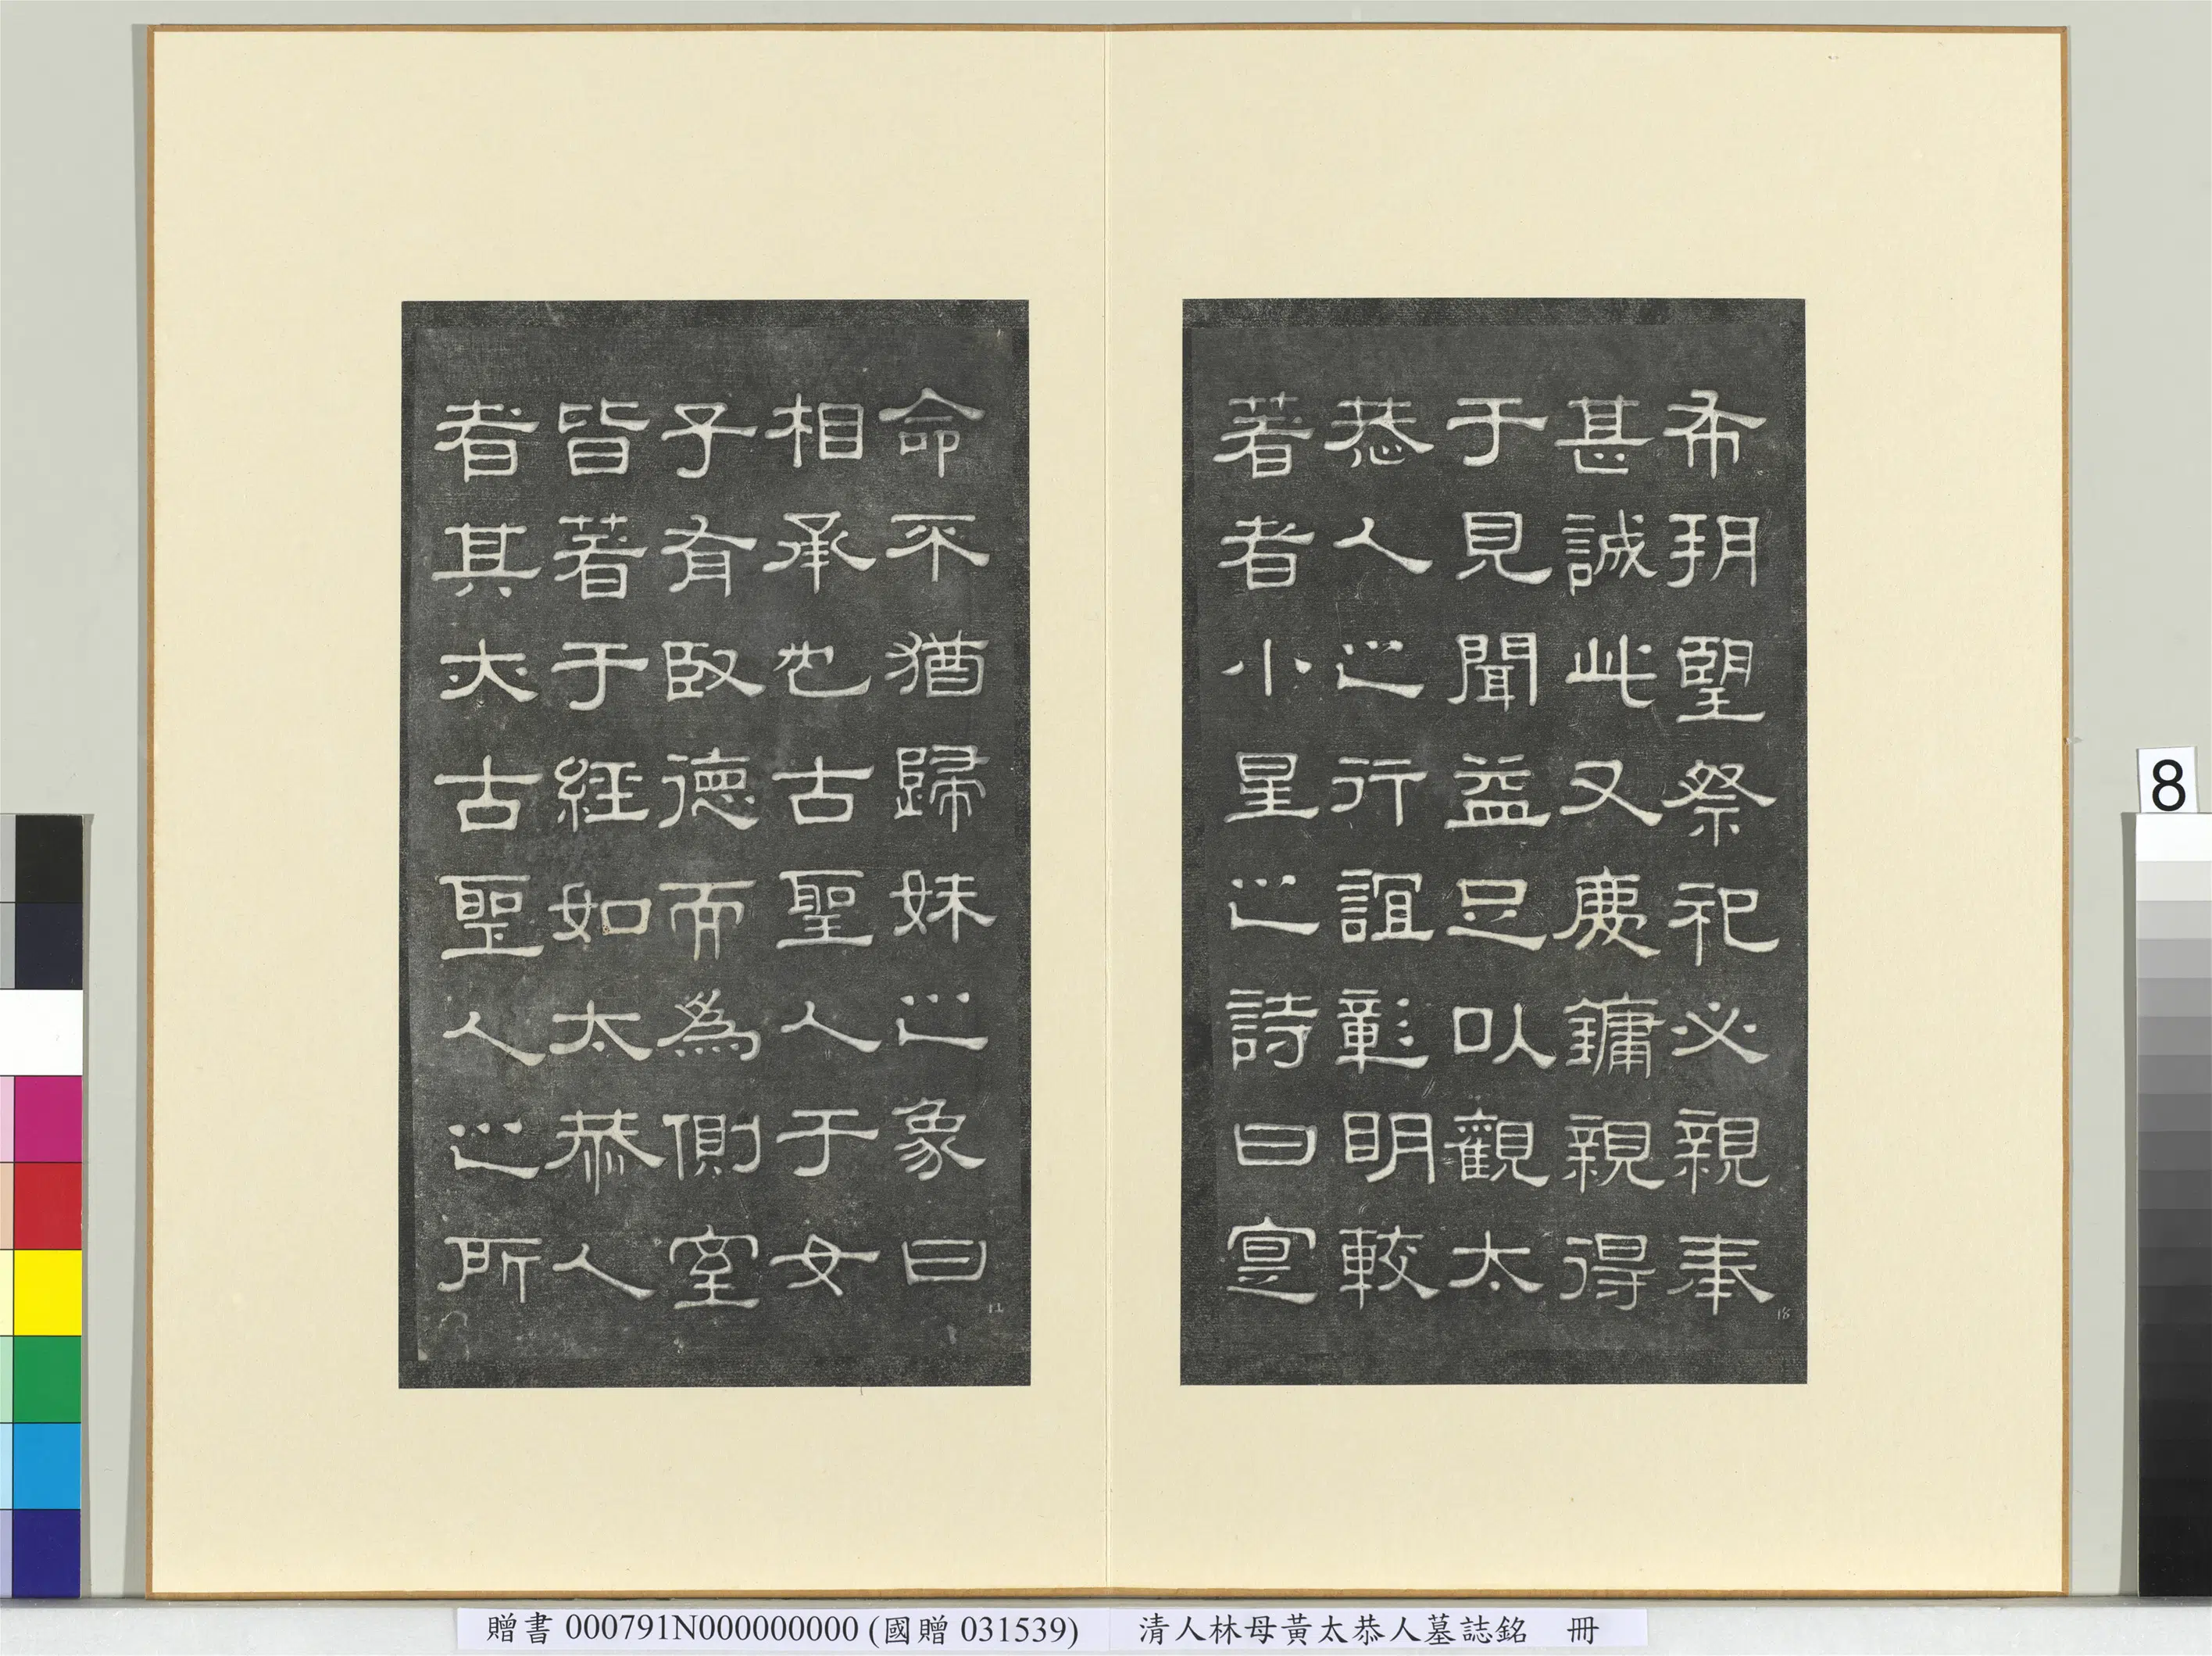 希朔望祭祀必親奉
甚誠此又慶鏞親得
于見聞益足以觀太
恭人之行誼彰明較
著者小星之詩曰寔
命不猶歸妹之象曰
相承也古聖人于女
子有臤德而爲側室
皆著于經如太恭人
者其亦古聖人之所
18
8
贈書 000791N000000000 (國贈 031539) 清人林母黃太恭人墓誌銘 冊